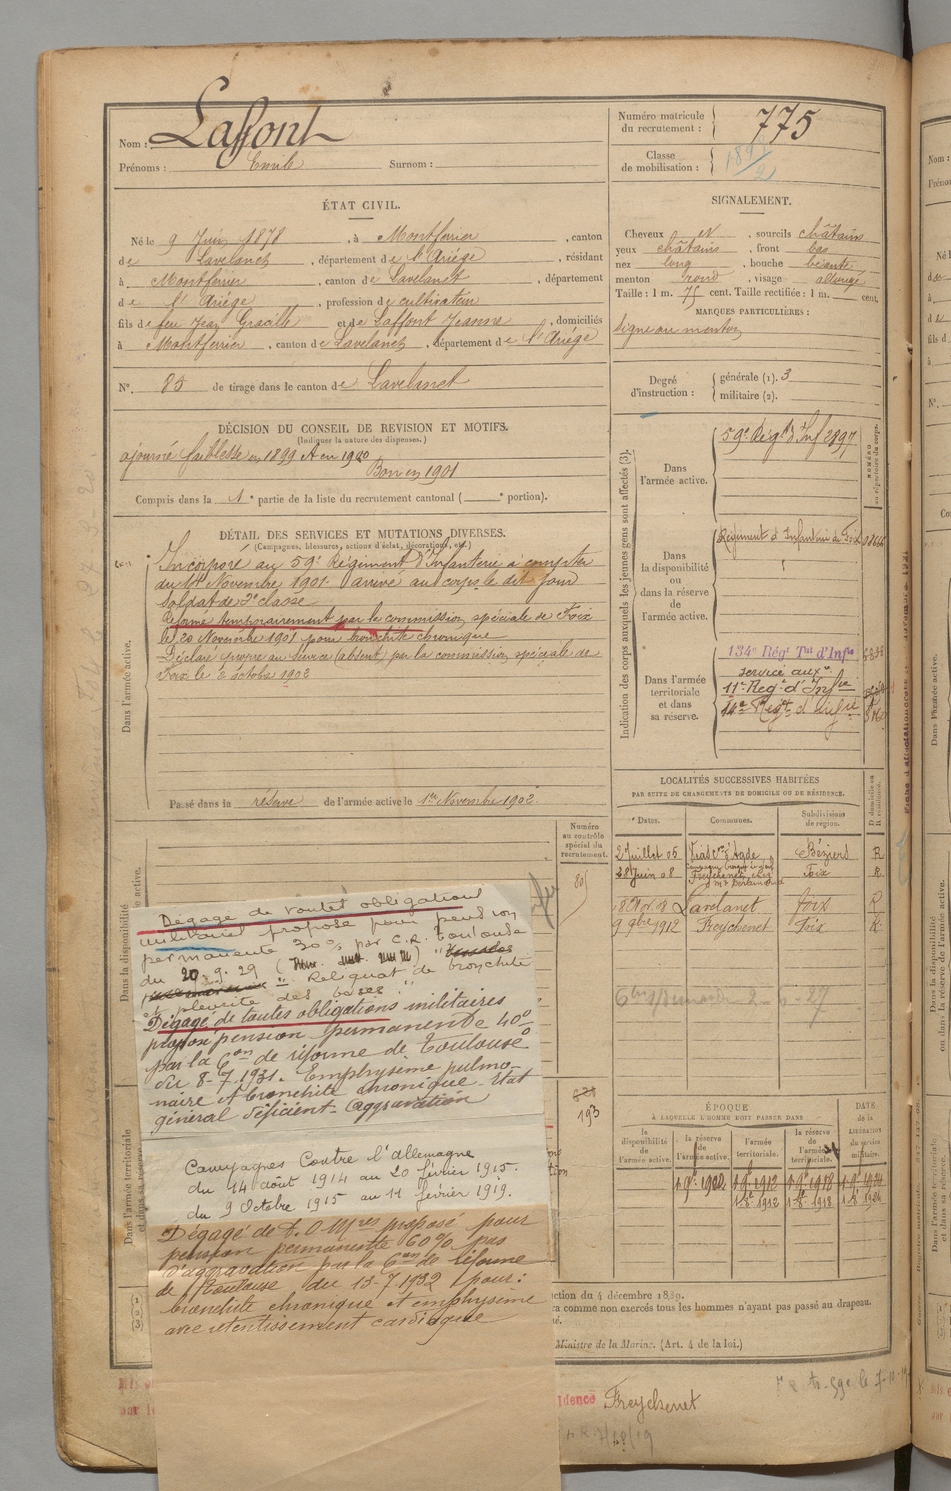 Nom : Laffont
Prénoms : Emile Surnom :
Numéro matricule du recrutement : 775
Classe de mobilisation : 1897/2
ÉTAT CIVIL.
Né le 9 Juin 1878, à Montferrier, canton
de Lavelanet, département de l'Ariége, résidant
à Montferrier, canton de Lavelanet, département
de l'Ariége, profession de cultivateur
fils de feu Jean Gracille et de Laffont Jeanne, domiciliés
à Montferrier, canton de Lavelanet, département de l'Ariége
N°. 85 de tirage dans le canton de Lavelanet
SIGNALEMENT.
Cheveux N, sourcils châtains
yeux châtains, front bas
nez long, bouche béante
menton rond, visage allongé
Taille : 1 m. 75 cent. Taille rectifiée : 1 m. cent.
MARQUES PARTICULIÈRES :
signe au menton
Degré d'instruction : générale (1). 3
militaire (2).
DÉCISION DU CONSEIL DE REVISION ET MOTIFS.
(Indiquer la nature des dispenses.)
ajourné faiblesse en 1899 et en 1900
Bon en 1901
Compris dans la 1e partie de la liste du recrutement cantonal ( e portion).
DÉTAIL DES SERVICES ET MUTATIONS DIVERSES.
(Campagnes, blessures, actions d'éclat, décorations, etc.)
Dans l'armée active.
Incorporé au 59e Régiment d'Infanterie à compter
du 14 Novembre 1901 arrivé au corps le dit jour
soldat de 2e classe
Réformé temporairement par la commission spéciale de Foix
le 20 Novembre 1901 pour bronchite chronique
Déclaré propre au service (absent) par la commission spéciale de
Foix le 2 octobre 1902
Passé dans la réserve de l'armée active le 1er Novembre 1902.
Indication des corps auxquels les jeunes gens sont affectés (3).
Dans l'armée active.
59e Régt d'Inf 2897
Dans la disponibilité ou dans la réserve de l'armée active.
Régiment d'Infanterie de Foix
Dans l'armée territoriale et dans sa réserve.
134e Régt Tal d'Infie
service aux
11e Regt d'Infie
14e Regt d'Infie
LOCALITÉS SUCCESSIVES HABITÉES
PAR SUITE DE CHANGEMENTS DE DOMICILE OU DE RÉSIDENCE.
Dates. Communes. Subdivisions de région. D. domicile ou R. résidence.
2 Juillet 05 Vias Cne d'Agde Béziers R
28 Juin 08 Freychenet chez Foix R
Lavelanet Foix R
9 9bre 1912 Freychenet Foix R
Numéro au contrôle spécial du recrutement.
Dans la disponibilité
Dans l'armée territoriale
193
ÉPOQUE
À LAQUELLE L'HOMME DOIT PASSER DANS
la disponibilité de l'armée active. la réserve de l'armée active. l'armée territoriale. la réserve de l'armée territoriale. DATE de la LIBÉRATION du service militaire.
Dégagé de toutes obligations
militaires proposé pour pension
permanente 30% par C.R. Toulouse
du 20.9.29
"Reliquat de bronchite
et pleurite des bases."
Dégagé de toutes obligations militaires
proposé pension permanente 40%
par la Con de réforme de Toulouse
du 8-7-1931. Emphysème pulmo-
naire et bronchite chronique - Etat
général déficient - Aggravation
Campagnes Contre l'allemagne
du 14 août 1914 au 20 février 1915.
du 9 Octobre 1915 au 11 février 1919.
Dégagé de T. O Mres proposé pour
pension permanente 60% pas
d'aggravation par la Con de réforme
de Toulouse du 13-7-1932 pour :
bronchite chronique et emphysème
avec retentissement cardiaque
ction du 4 décembre 1889.
ra comme non exercés tous les hommes n'ayant pas passé au drapeau.
Ministre de la Marine. (Art. 4 de la loi.)
idence Freychenet